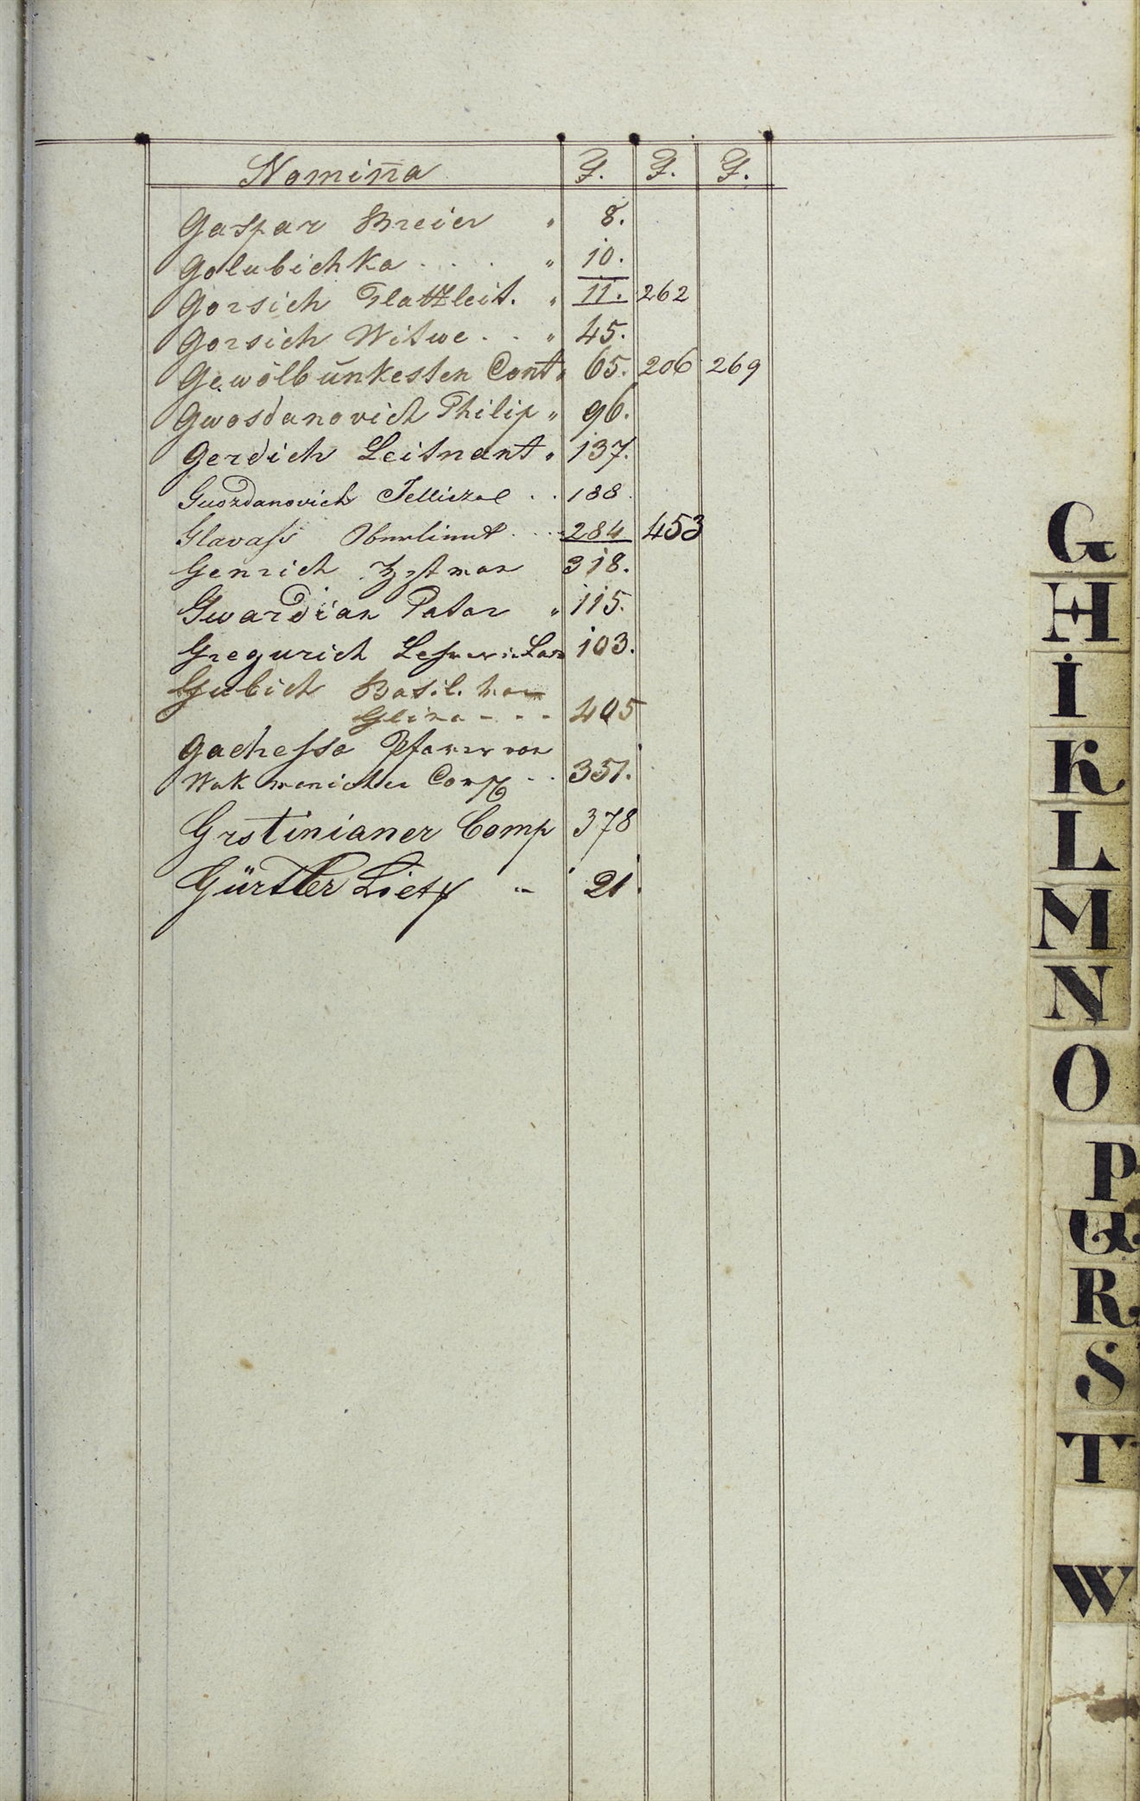 Nomina F. F. F.
Gaspar Breier " 8.
Golubichka . . . . " 10.
Gorsich Platzleit. " 11. 262
Gorsich Witwe . . " 45.
Gewölbunkesten Cont " 65. 206 269
Gwosdanovich Philip " 96.
Gerdich Leitnant " 137.
Guozdanovich . . 188.
Glavaſs . . . . 284 453
Genrich 318.
Gwardian Pator " 115.
Gregurich 103.
Gubich Basil. von
Glina - - - 405
Gacheſsa Pfarrer von
Comp . . 351.
Grotinianer Comp 378
Gürtler " 21.
G
H
I
K
L
M
N
O
P
Q
R
S
T
W